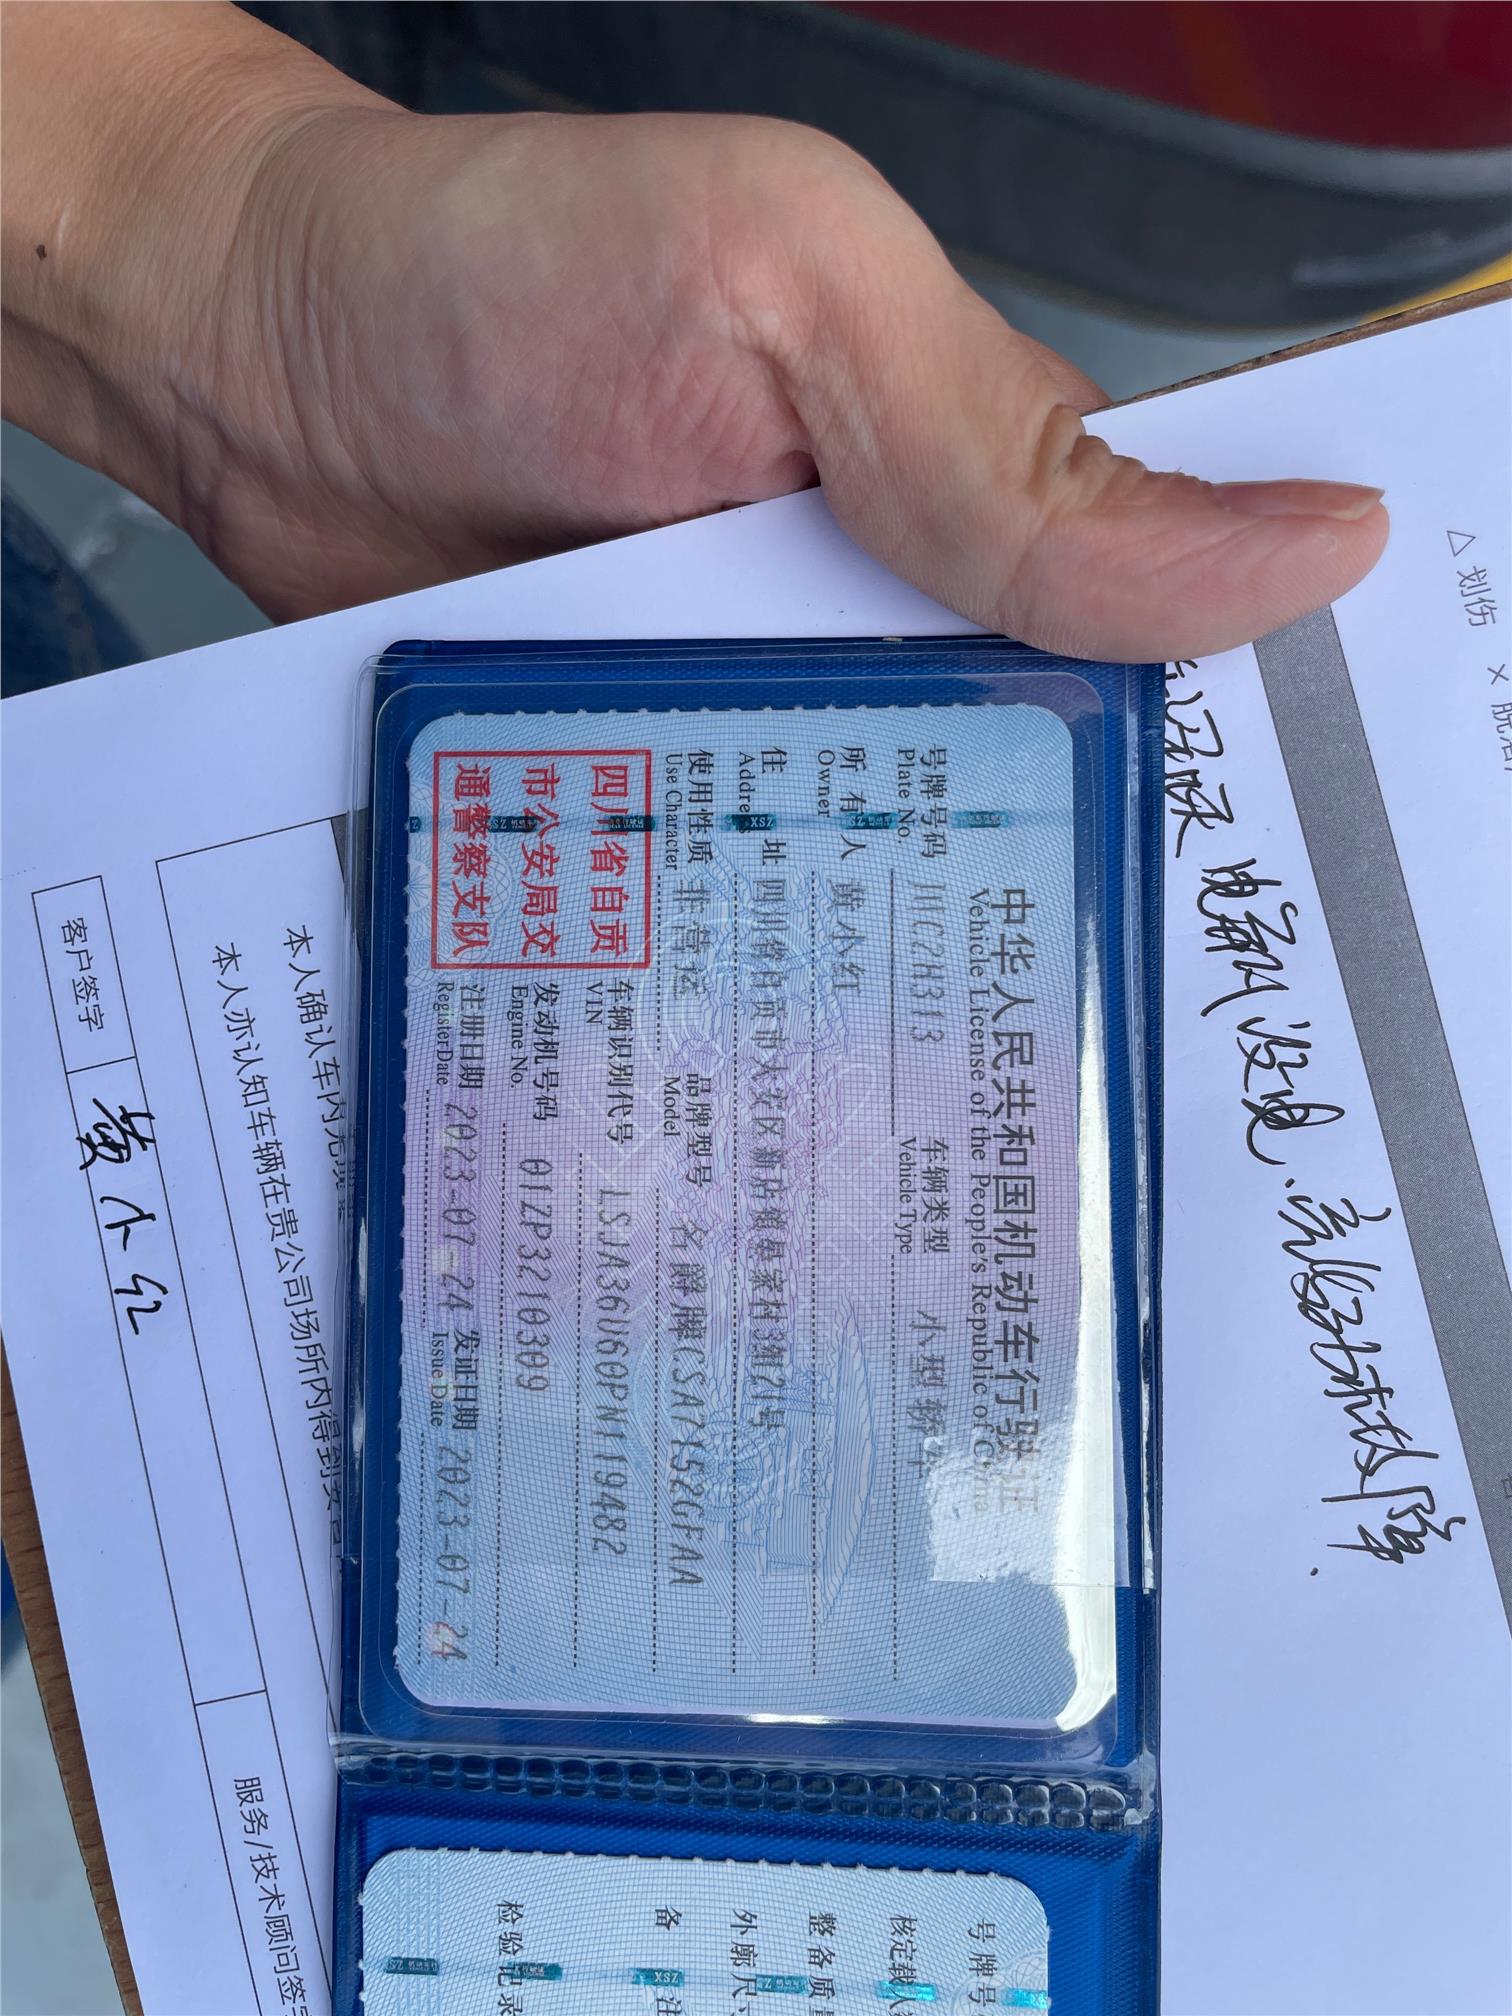 中华人民共和国机动车行驶证
Vehicle License of the People's Republic of China
号牌号码 川C2H313 车辆类型 小型轿车
Plate No. Vehicle Type
所有人 黄小红
Owner
住址 四川省自贡市大安区新店镇晏家村3组21号
Address
使用性质 非营运 品牌型号 名爵牌CSA7152GFAA
Use Character Model
四川省自贡
市公安局交
通警察支队
车辆识别代号 LSJA36U60PN119482
VIN
发动机号码 01ZP3210309
Engine No.
注册日期 2023-07-24 发证日期 2023-07-24
Register Date Issue Date
号牌号
核定载人
整备质
外廓尺
备注
检验记录
△划伤 ×
电瓶没电
故障.
本人确认车内无
本人亦认知车辆在贵公司场所内得到
客户签字 黄小红
服务/技术顾问签